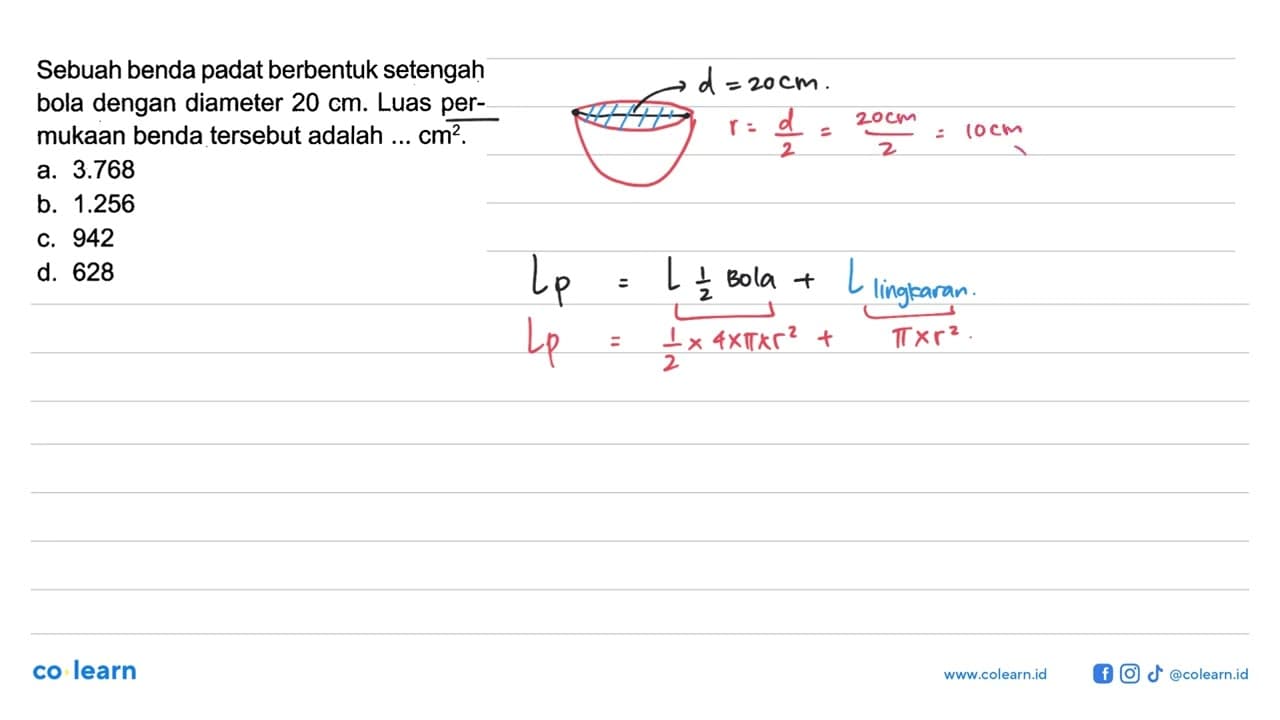 Sebuah benda padat berbentuk setengah
bola dengan diameter 20 cm. Luas per-
mukaan benda tersebut adalah ... cm².
a. 3.768
b. 1.256
c. 942
d. 628
d = 20 cm.
r = d/2 = 20 cm/2 = 10 cm
Lp = L 1/2 Bola + L lingkaran.
Lp = 1/2 × 4 × π × r² + π × r².
co learn
www.colearn.id
@colearn.id